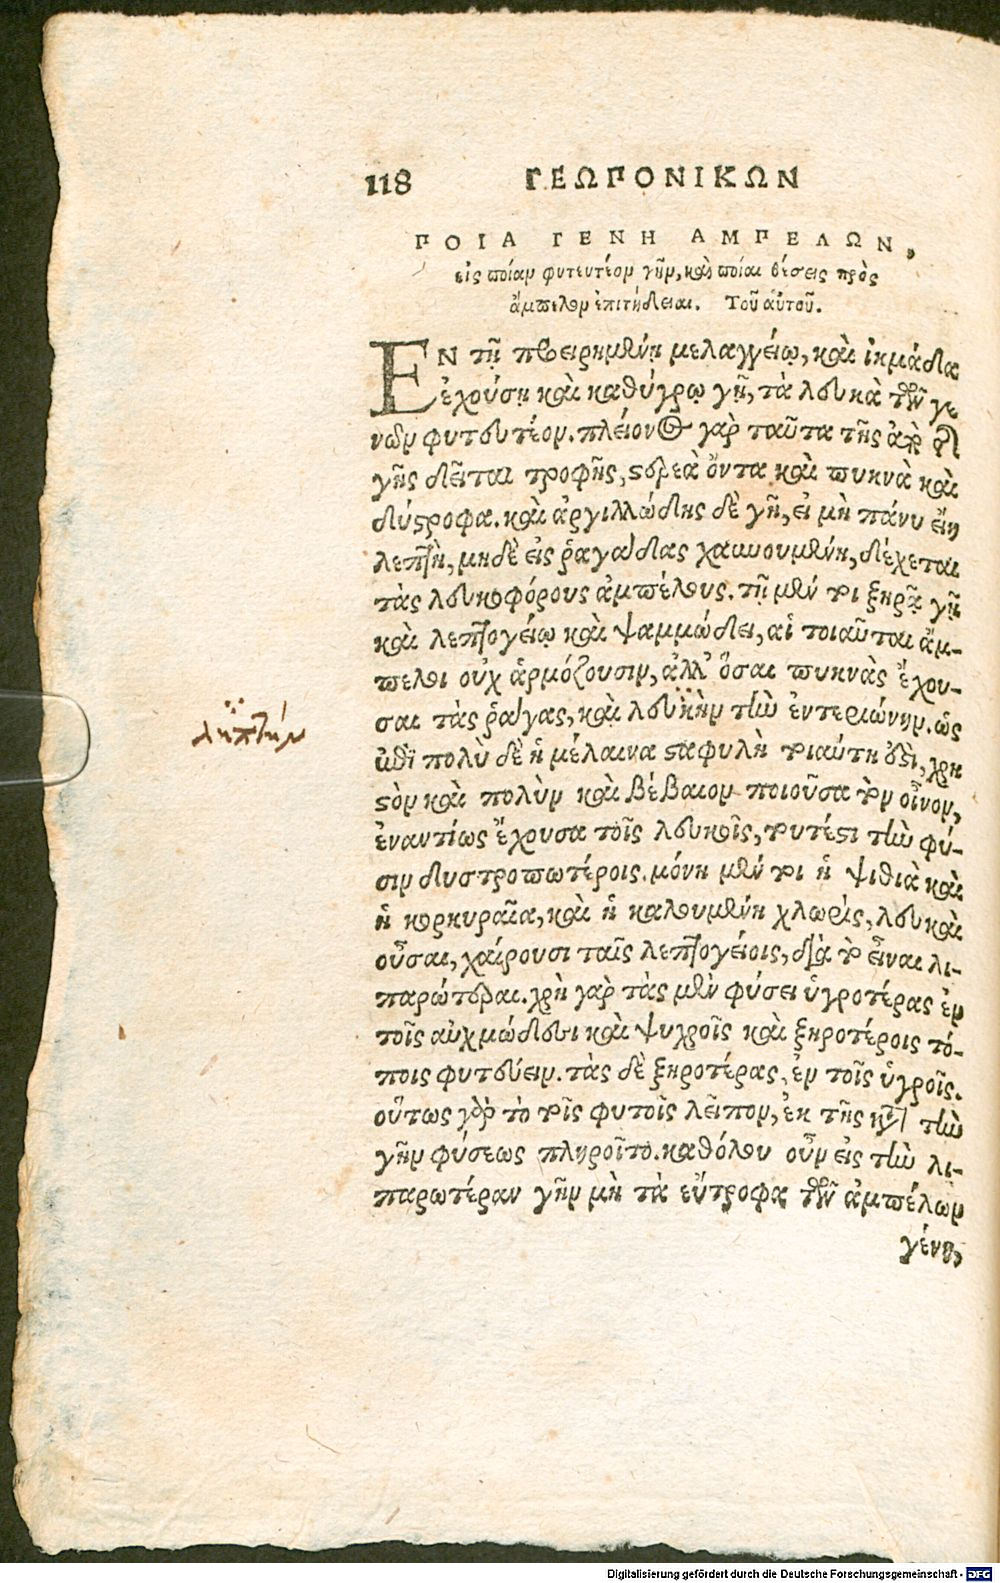 118 ΓΕΩΠΟΝΙΚΩΝ
ΠΟΙΑ ΓΕΝΗ ΑΜΠΕΛΩΝ,
εἰς ποίαν φυτευτέον γῆν, καὶ ποίαι θέσεις πρὸς
ἄμπελον ἐπιτήδειαι. Τοῦ αὐτοῦ.
ΕΝ τῇ προειρημένῃ μελαγγείῳ, καὶ ἰκμάδα
ἐχούσῃ καὶ καθύγρῳ γῇ, τὰ λευκὰ τῶν γε
νῶν φυτευτέον. πλείονος γὰρ ταῦτα τῆς ἀπὸ
γῆς δεῖται τροφῆς, στερεὰ ὄντα καὶ πυκνὰ καὶ
δύστροφα. καὶ ἀργιλλώδης δὲ γῆ, εἰ μὴ πάνυ εἴη
λεπτὴ, μηδὲ εἰς ῥαγάδας χαυνουμένη, δέχεται
τὰς λευκοφόρους ἀμπέλους. τῇ μέν τοι ξηρᾷ γῇ
καὶ λεπτογείῳ καὶ ψαμμώδει, αἱ τοιαῦται ἄμ-
πελοι οὐχ ἁρμόζουσιν, ἀλλ' ὅσαι πυκνὰς ἔχου-
σαι τὰς ῥᾶγας, καὶ λευκὴν τὴν ἐντεριώνην. ὡς
ἐπὶ πολὺ δὲ ἡ μέλαινα σταφυλὴ τοιαύτη ἐστὶ, χρη
στὸν καὶ πολὺν καὶ βέβαιον ποιοῦσα τὸν οἶνον,
ἐναντίως ἔχουσα τοῖς λευκοῖς, τουτέστι τὴν φύ-
σιν δυστροπωτέροις. μόνη μέν τοι ἡ ψιθιὰ καὶ
ἡ κορκυραῖα, καὶ ἡ καλουμένη χλωρὶς, λευκαὶ
οὖσαι, χαίρουσι ταῖς λεπτογείοις, διὰ τὸ εἶναι λι-
παρώτεραι. χρὴ γὰρ τὰς μὲν φύσει ὑγροτέρας ἐν
τοῖς αὐχμώδεσι καὶ ψυχροῖς καὶ ξηροτέροις τό-
ποις φυτεύειν. τὰς δὲ ξηροτέρας, ἐν τοῖς ὑγροῖς.
οὕτως γὰρ τὸ τοῖς φυτοῖς λεῖπον, ἐκ τῆς κατὰ τὴν
γῆν φύσεως πληροῖτο. καθόλου οὖν εἰς τὴν λι-
παρωτέραν γῆν μὴ τὰ εὔτροφα τῶν ἀμπέλων
γένη,
λεπτὴν
Digitalisierung gefördert durch die Deutsche Forschungsgemeinschaft - DFG